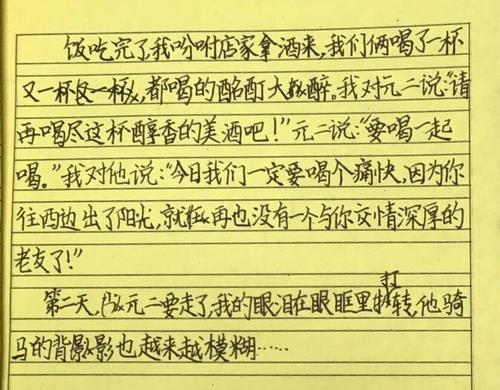 饭吃完了我吩咐店家拿酒来,我们俩喝了一杯
又一杯又一杯,都喝的酩酊大醉。我对元二说:“请
再喝尽这杯醇香的美酒吧!”元二说:“要喝一起
喝。”我对他说:“今日我们一定要喝个痛快,因为你
往西边出了阳光,就再也没有一个与你交情深厚的
老友了!”
第二天,元二要走了,我的眼泪在眼眶里打转,他骑
马的背影也越来越模糊……